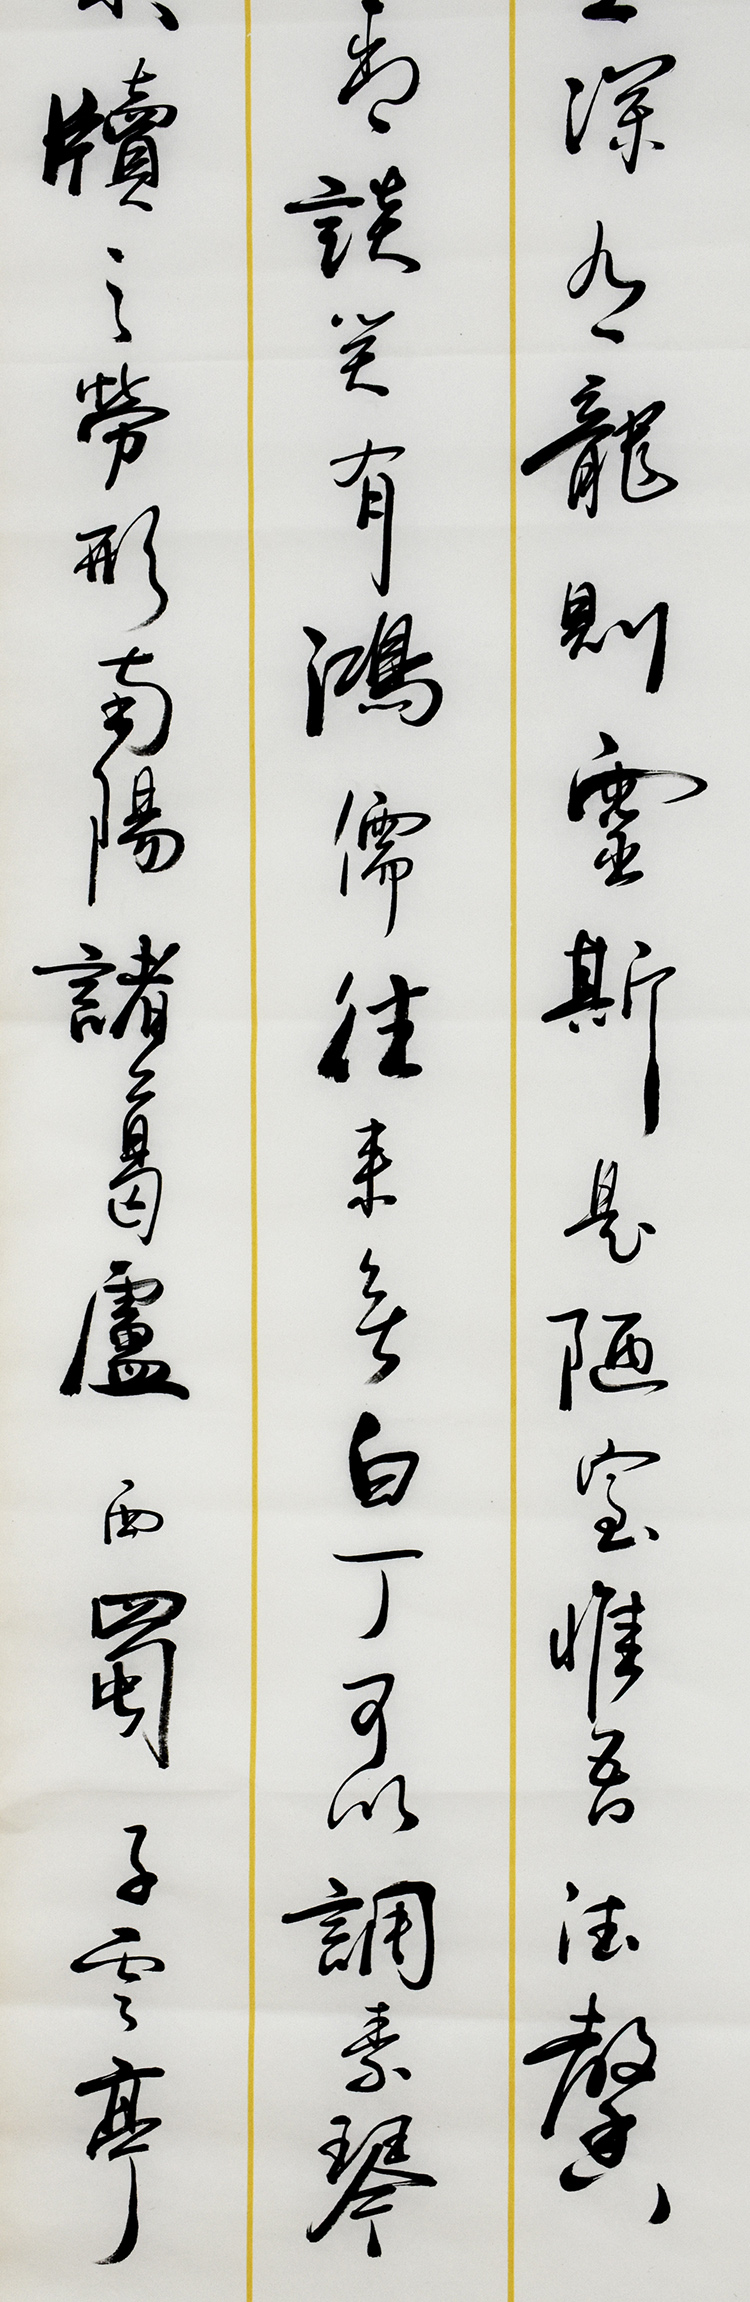 深有龍則靈斯是陋室惟吾德馨
談笑有鴻儒往来無白丁可以調素琴
牘之勞形南陽諸葛廬西蜀子雲亭